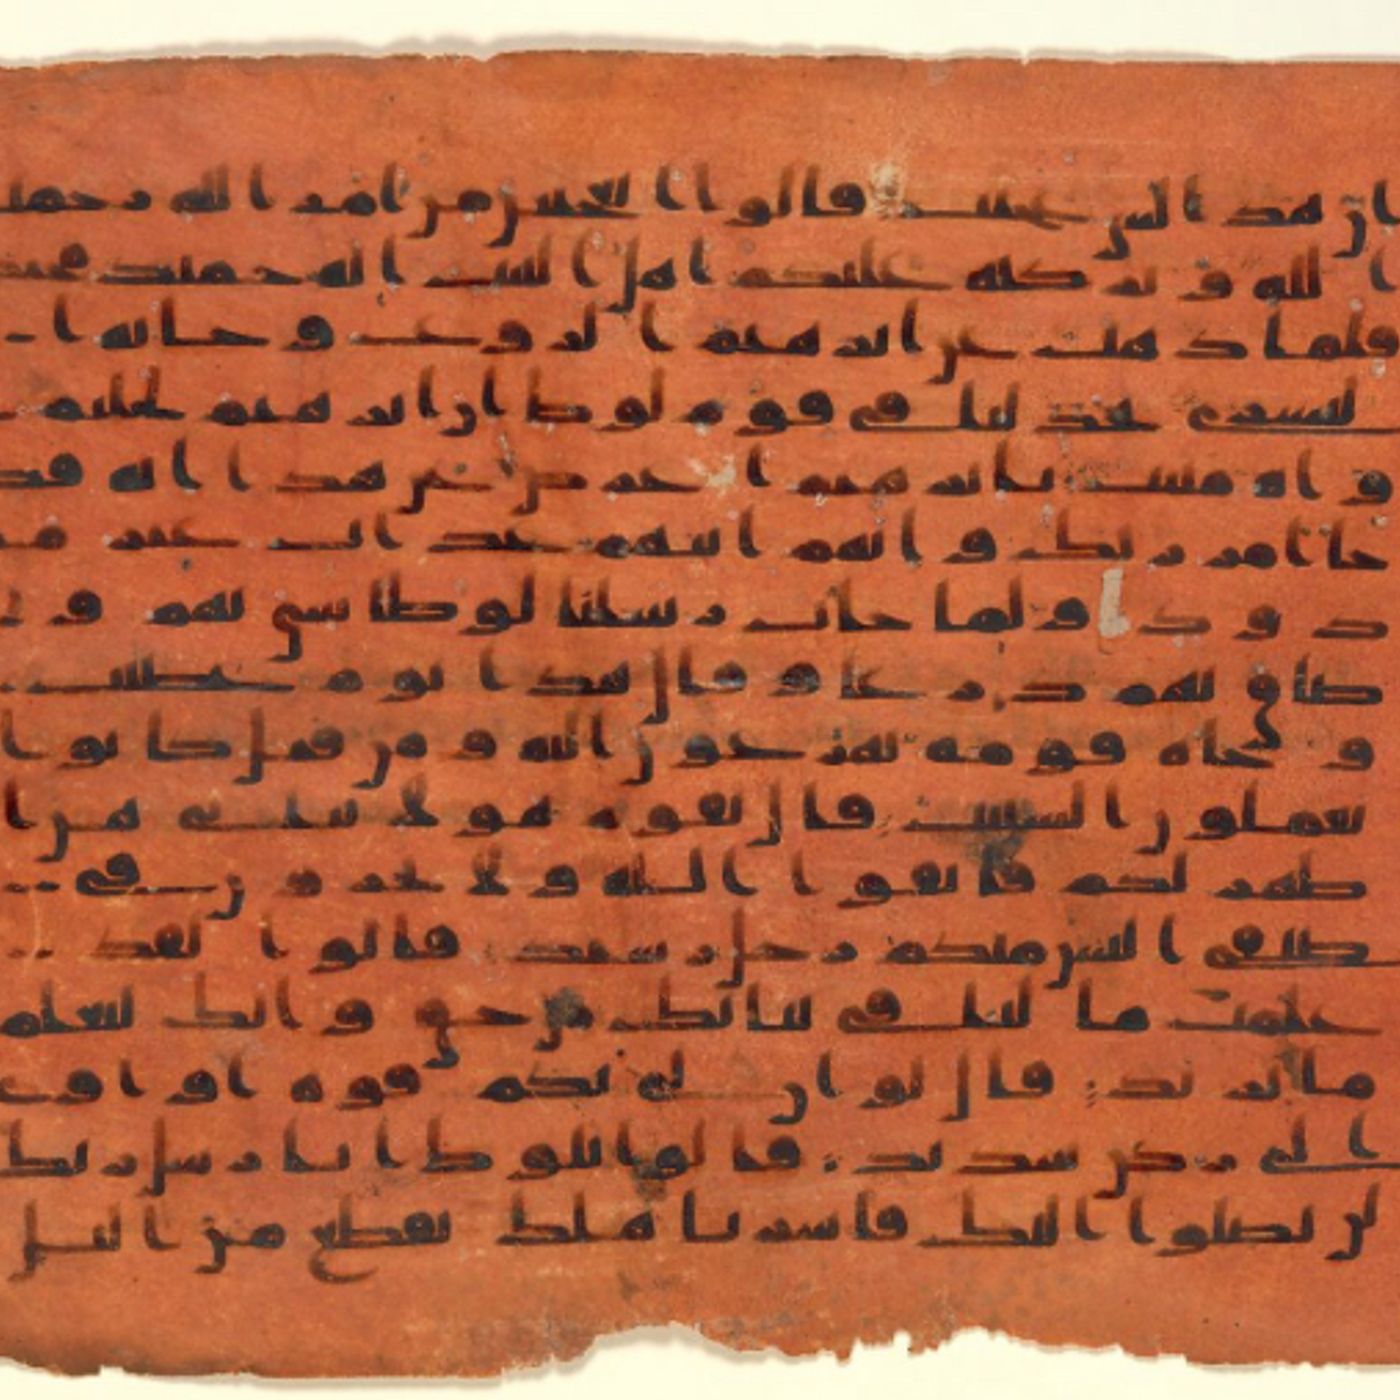 ان هذا لشى عجيب قالوا اتعجبين من امر الله رحمت
الله وبركته عليكم اهل البيت انه حميد مجيد
فلما ذهب عن ابرهيم الروع وجاته ا
لبشرى يجدلنا فى قوم لوط ان ابرهيم لحليم
اوه منيب يابرهيم اعرض عن هذا انه قد
جا امر ربك وانهم اتيهم عذاب غير مر
دود ولما جات رسلنا لوطا سى بهم و
ضاق بهم ذرعا وقال هذا يوم عصيب
وجاه قومه يهرعون اليه ومن قبل كانوا
يعملون السيت قال يقوم هولا بناتى هن ا
طهر لكم فاتقوا الله ولا تخزون فى
ضيفى اليس منكم رجل رشيد قالوا لقد
علمت ما لنا فى بناتك من حق وانك لتعلم
ما نريد قال لو ان لى بكم قوة او اوى
الى ركن شديد قالوا يلوط انا رسل ربك
لن يصلوا اليك فاسر باهلك بقطع من اليل